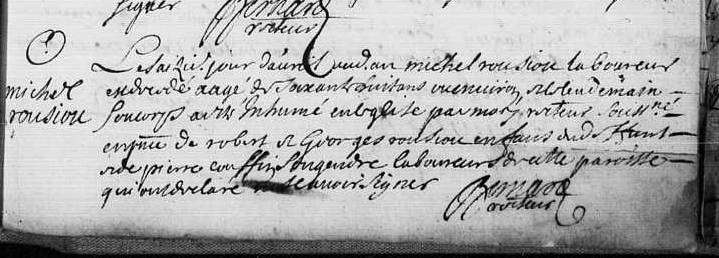 signer Bernard
recteur
michel
rousiou
Le jour dud. an michel rousiou laboureur
est décédé aagé de soixante huit ans ou environ, et le lendemain
son corps a été Inhumé en leglise par moy recteur soussné
en pnce de robert et Georges rousiou enfans dud. deffunt
et de pierre son gendre laboureurs de cette paroisse
qui ont declaré ne scavoir signer Bernard
recteur